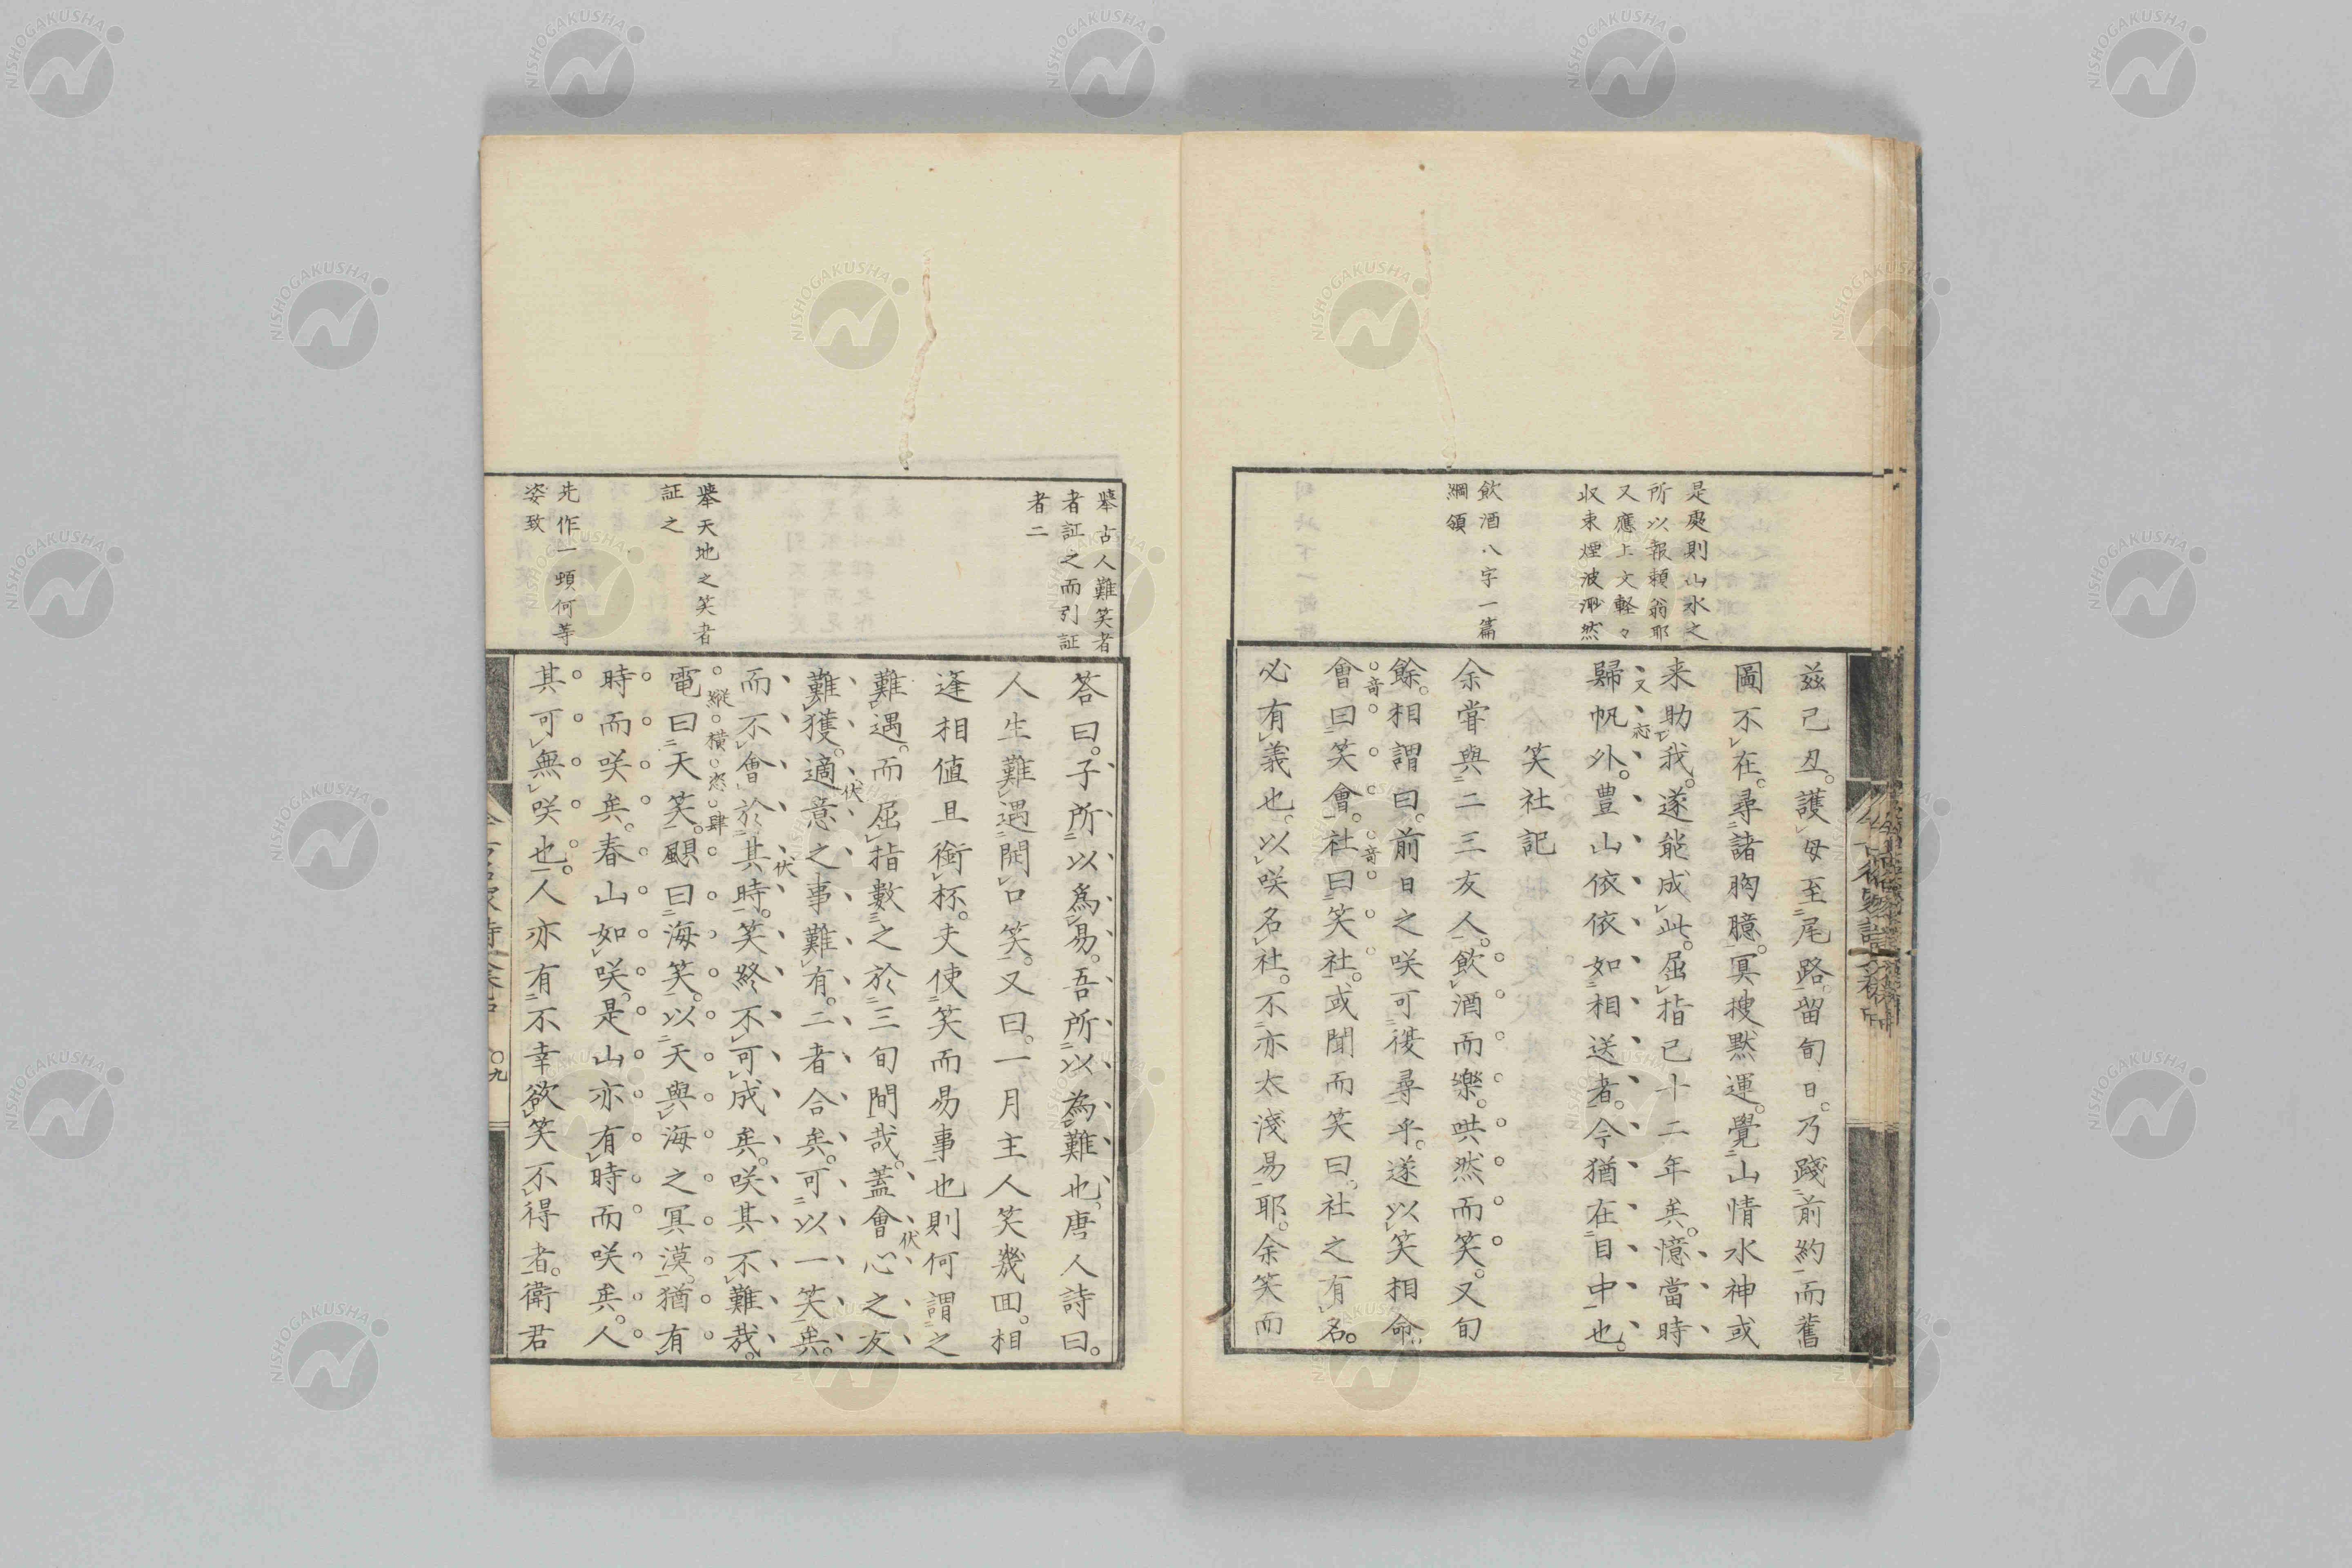 是更則山水之
所以報頼翁耶
又應上文軽々
収束煙波渺然
飲酒八字一篇
綱領
茲己丑。護母至尾路。留旬日。乃踐前約而舊
圖不在。尋諸胸臆。冥搜默運。覺山情水神或
来助我。遂能成此。屈指已十二年矣。憶當時
歸帆外。豊山依依如相送者。今猶在目中也。
笑社記
余甞與二三友人。飲酒而樂。哄然而笑。又旬
餘。相謂曰。前日之咲可復尋乎。遂以笑相命
會曰笑會。社曰笑社。或聞而笑曰。社之有名。
必有義也。以咲名社。不亦太淺易耶。余笑而
擧古人難笑者
者証之而引証
者二
擧天地之笑者
証之
先作一頓何等
姿致
答曰。子所以爲易。吾所以為難也。唐人詩曰。
人生難遇開口笑。又曰。一月主人笑幾囬。相
逢相値且銜杯。夫使笑而易事也則何謂之
難遇。而屈指數之於三旬間哉。蓋會心之友
難獲。適意之事難有。二者合矣。可以一笑矣。
而不會於其時。笑終不可成矣。咲其不難哉。
電曰天笑。颶曰海笑。以天與海之冥漠。猶有
時而咲矣。春山如咲。是山亦有時而咲矣。人
其可無咲也。人亦有不幸欲笑不得者。衛君